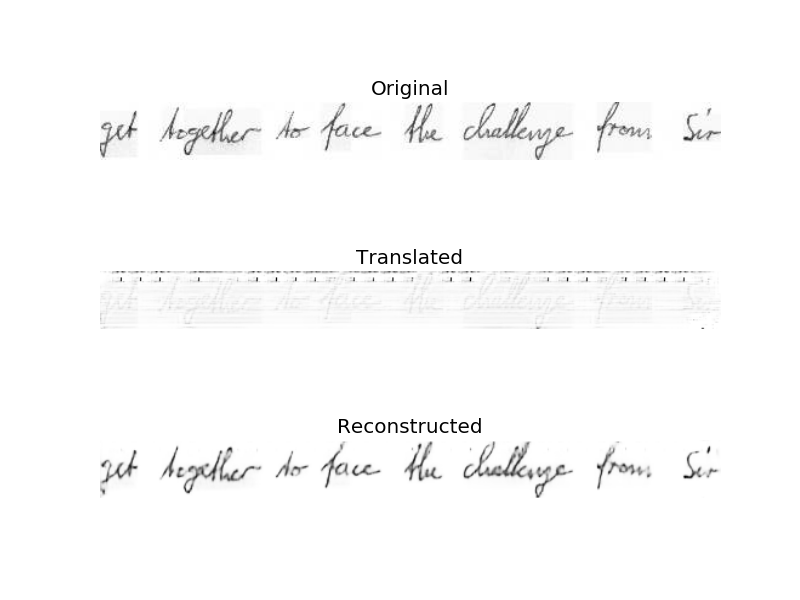 Original
get together to face the challenge from Sir
Translated
get together to face the challenge from Sir
Reconstructed
get together to face the challenge from Sir